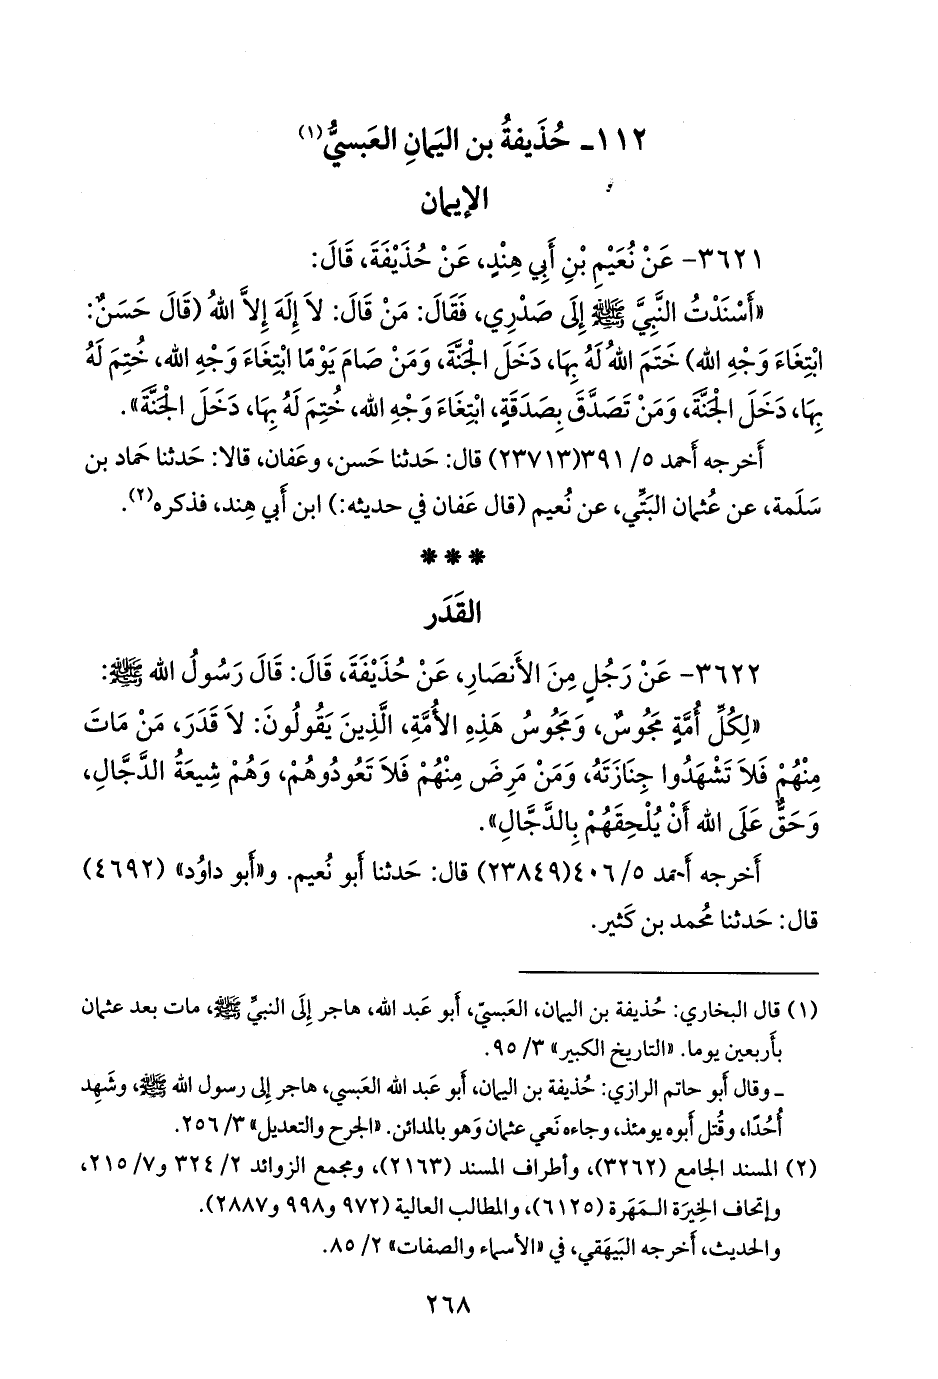 ١١٢ـ حُذَيفةُ بن اليَمانِ العَبسيُّ(١)
الإيمان
٣٦٢١- عَنْ نُعَيْمِ بْنِ أَبِي هِنْدٍ، عَنْ حُذَيْفَةَ، قَالَ:
«أَسْنَدْتُ النَّبِيَّ ﷺ إِلَى صَدْرِي، فَقَالَ: مَنْ قَالَ: لاَ إِلَهَ إِلاَّ اللهُ (قَالَ حَسَنٌ:
ابْتِغَاءَ وَجْهِ الله) خَتَمَ اللهُ لَهُ بِهَا، دَخَلَ الْجَنَّةَ، وَمَنْ صَامَ يَوْمًا ابْتِغَاءَ وَجْهِ الله، خُتِمَ لَهُ
بِهَا، دَخَلَ الْجَنَّةَ، وَمَنْ تَصَدَّقَ بِصَدَقَةٍ، ابْتِغَاءَ وَجْهِ الله، خُتِمَ لَهُ بِهَا، دَخَلَ الْجَنَّةَ».
أَخرجه أَحمد ٥/ ٣٩١(٢٣٧١٣) قال: حَدثنا حَسن، وعَفان، قالا: حَدثنا حَماد بن
سَلَمة، عن عُثمان البَتِّي، عن نُعيم (قال عَفان في حديثه:) ابن أَبي هِند، فذكره(٢).
***
القَدَر
٣٦٢٢- عَنْ رَجُلٍ مِنَ الأَنصَارِ، عَنْ حُذَيْفَةَ، قَالَ: قَالَ رَسُولُ الله ﷺ:
«لِكُلِّ أُمَّةٍ مَجُوسٌ، وَمَجُوسُ هَذِهِ الأُمَّةِ، الَّذِينَ يَقُولُونَ: لاَ قَدَرَ، مَنْ مَاتَ
مِنْهُمْ فَلاَ تَشْهَدُوا جِنَازَتَهُ، وَمَنْ مَرِضَ مِنْهُمْ فَلاَ تَعُودُوهُمْ، وَهُمْ شِيعَةُ الدَّجَّالِ،
وَحَقٌّ عَلَى الله أَنْ يُلْحِقَهُمْ بِالدَّجَّالِ».
أَخرجه أَحمد ٥/ ٤٠٦(٢٣٨٤٩) قال: حَدثنا أَبو نُعيم. و«أَبو داوُد» (٤٦٩٢)
قال: حَدثنا مُحمد بن كَثير.
(١) قال البخاري: حُذيفة بن اليمان، العَبسيّ، أَبو عَبد الله، هاجر إِلَى النبيِّ ﷺ، مات بعد عثمان
بأَربعين يوما. «التاريخ الكبير» ٣/ ٩٥.
ـ وقال أَبو حاتم الرازي: حُذيفة بن اليمان، أَبو عَبد الله العَبسي، هاجر إِلى رسول الله ﷺ، وشَهِد
أُحُدًا، وقُتل أَبوه يومئذ، وجاءه نَعي عثمان وَهو بالمدائن. «الجرح والتعديل» ٣/ ٢٥٦.
(٢) المسند الجامع (٣٢٦٢)، وأطراف المسند (٢١٦٣)، ومجمع الزوائد ٢/ ٣٢٤ و٧/ ٢١٥،
وإتحاف الخِيرَة الـمَهَرة (٦١٢٥)، والمطالب العالية (٩٧٢ و٩٩٨ و٢٨٨٧).
والحديث، أخرجه البَيهَقي، في «الأسماء والصفات» ٢/ ٨٥.
٢٦٨